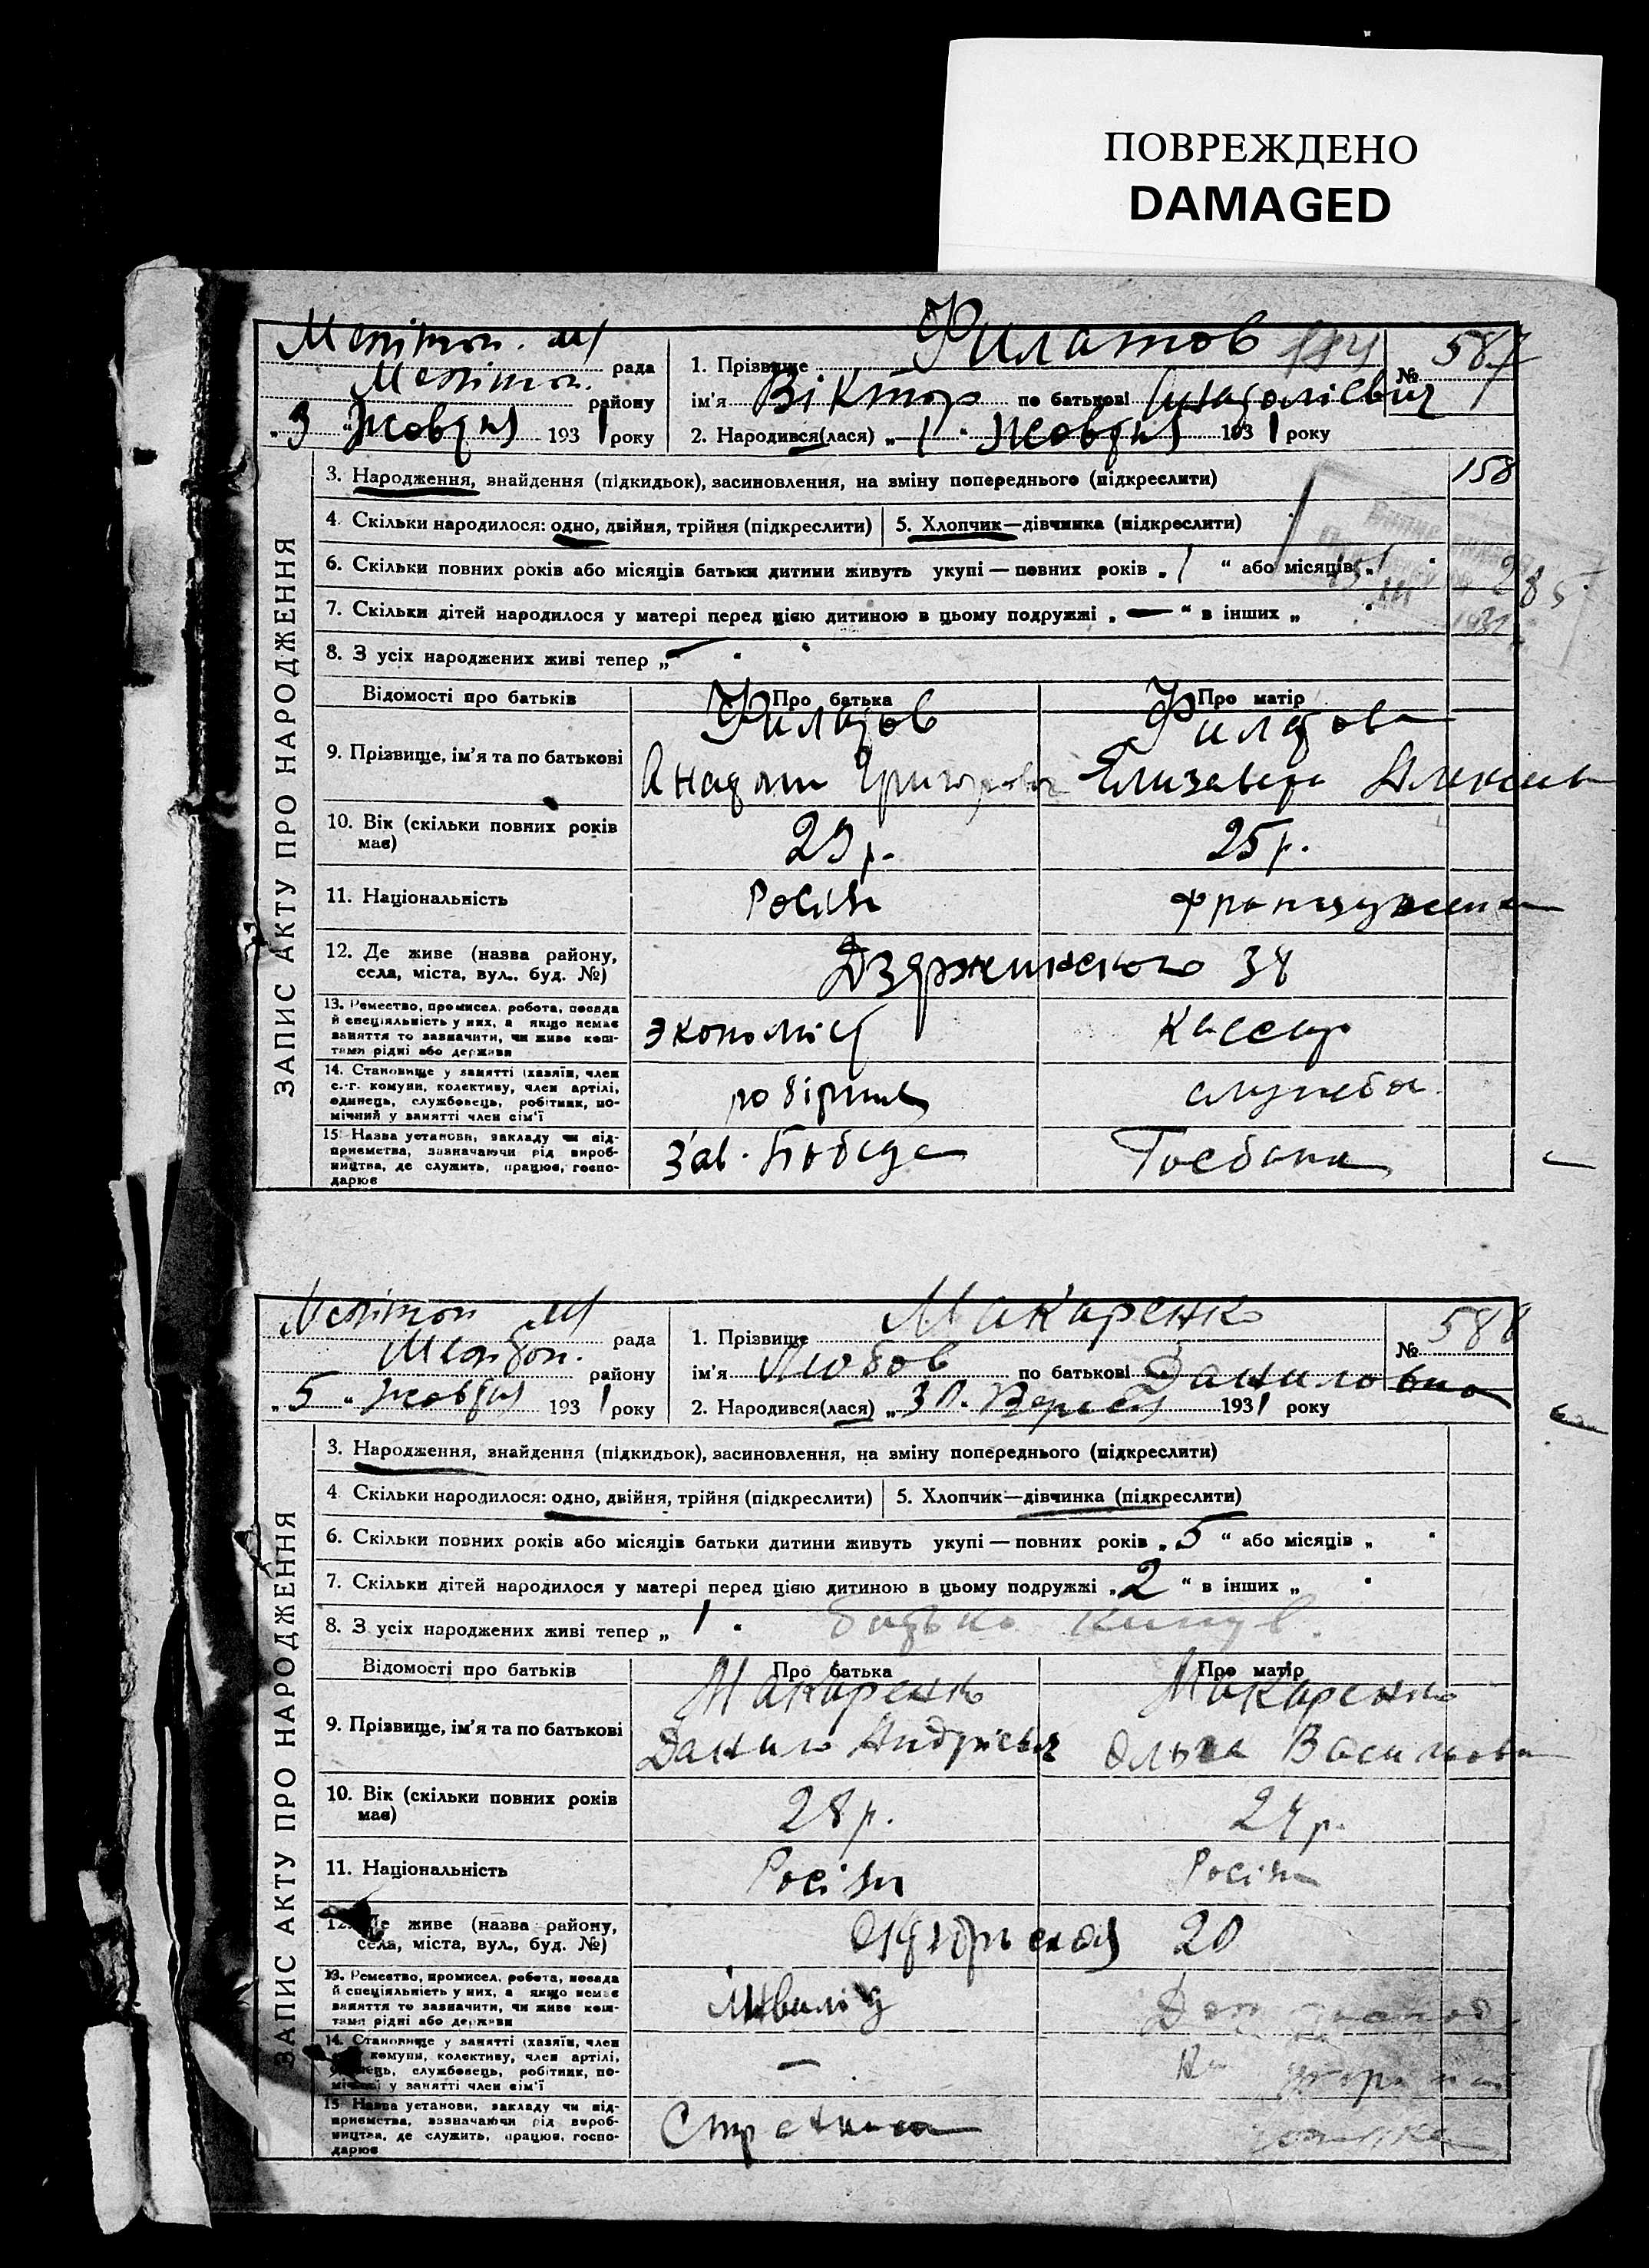 ПОВРЕЖДЕНО
DAMAGED
Мелітоп. м/
рада
Мелітоп.
району
„3 “ Жовтня 1931 року
1. Прізвище Филатов
№ 587
ім'я Віктор по батькові Анатолієвич
2. Народився(лася) „ 1 “ Жовтня 1931 року
ЗАПИС АКТУ ПРО НАРОДЖЕННЯ
3. Народження, знайдення (підкидьок), засиновлення, на зміну попереднього (підкреслити)
158
4. Скільки народилося: одно, двійня, трійня (підкреслити) 5. Хлопчик—дівчинка (підкреслити)
6. Скільки повних років або місяців батьки дитини живуть укупі — повних років „ 1 “ або місяців „
285
7. Скільки дітей народилося у матері перед цією дитиною в цьому подружжі „ — “ в інших „
8. З усіх народжених живі тепер „ —
Відомості про батьків Про батька Про матір
9. Прізвище, ім'я та по батькові
Филатов Филатова
Анатоли Григорович Елизавета
10. Вік (скільки повних років має) 29 р. 25 р.
11. Національність Росіян Француженка
12. Де живе (назва району, села, міста, вул., буд. №) Дзержинского 38
13. Ремество, промисел, робота, посада й спеціяльність у них, а якщо немає заняття то зазначити, чи живе коштами рідні або держави
экономіст Кассир
14. Становище у занятті (хазяїн, член с.-г. комуни, колективу, член артілі, одинець, службовець, робітник, помічний у занятті член сім'ї
робітник служба
15. Назва установи, закладу чи підприємства, зазначаючи рід виробництва, де служить, працює, господарює
Зав. Победа Госбанк
Мелітоп м/
рада
Мелітоп.
району
„5 “ жовтня 1931 року
1. Прізвище Макаренко
№ 588
ім'я Любов по батькові Даниловна
2. Народився(лася) „ 30 . Вересня 1931 року
ЗАПИС АКТУ ПРО НАРОДЖЕННЯ
3. Народження, знайдення (підкидьок), засиновлення, на зміну попереднього (підкреслити)
4. Скільки народилося: одно, двійня, трійня (підкреслити) 5. Хлопчик—дівчинка (підкреслити)
6. Скільки повних років або місяців батьки дитини живуть укупі — повних років „ 5 “ або місяців „
7. Скільки дітей народилося у матері перед цією дитиною в цьому подружжі „ 2 “ в інших „
8. З усіх народжених живі тепер „ 1 “ батько кинув.
Відомості про батьків Про батька Про матір
9. Прізвище, ім'я та по батькові
Макаренко Макаренко
Данило Андрієвич Ольга Василовна
10. Вік (скільки повних років має) 28 р. 24 р.
11. Національність Росіян Росіян
12. Де живе (назва району, села, міста, вул., буд. №) 20
13. Ремество, промисел, робота, посада й спеціяльність у них, а якщо немає заняття то зазначити, чи живе коштами рідні або держави
Інвалід Дом господ
14. Становище у занятті (хазяїн, член с.-г. комуни, колективу, член артілі, одинець, службовець, робітник, помічний у занятті член сім'ї
— На
15. Назва установи, закладу чи підприємства, зазначаючи рід виробництва, де служить, працює, господарює